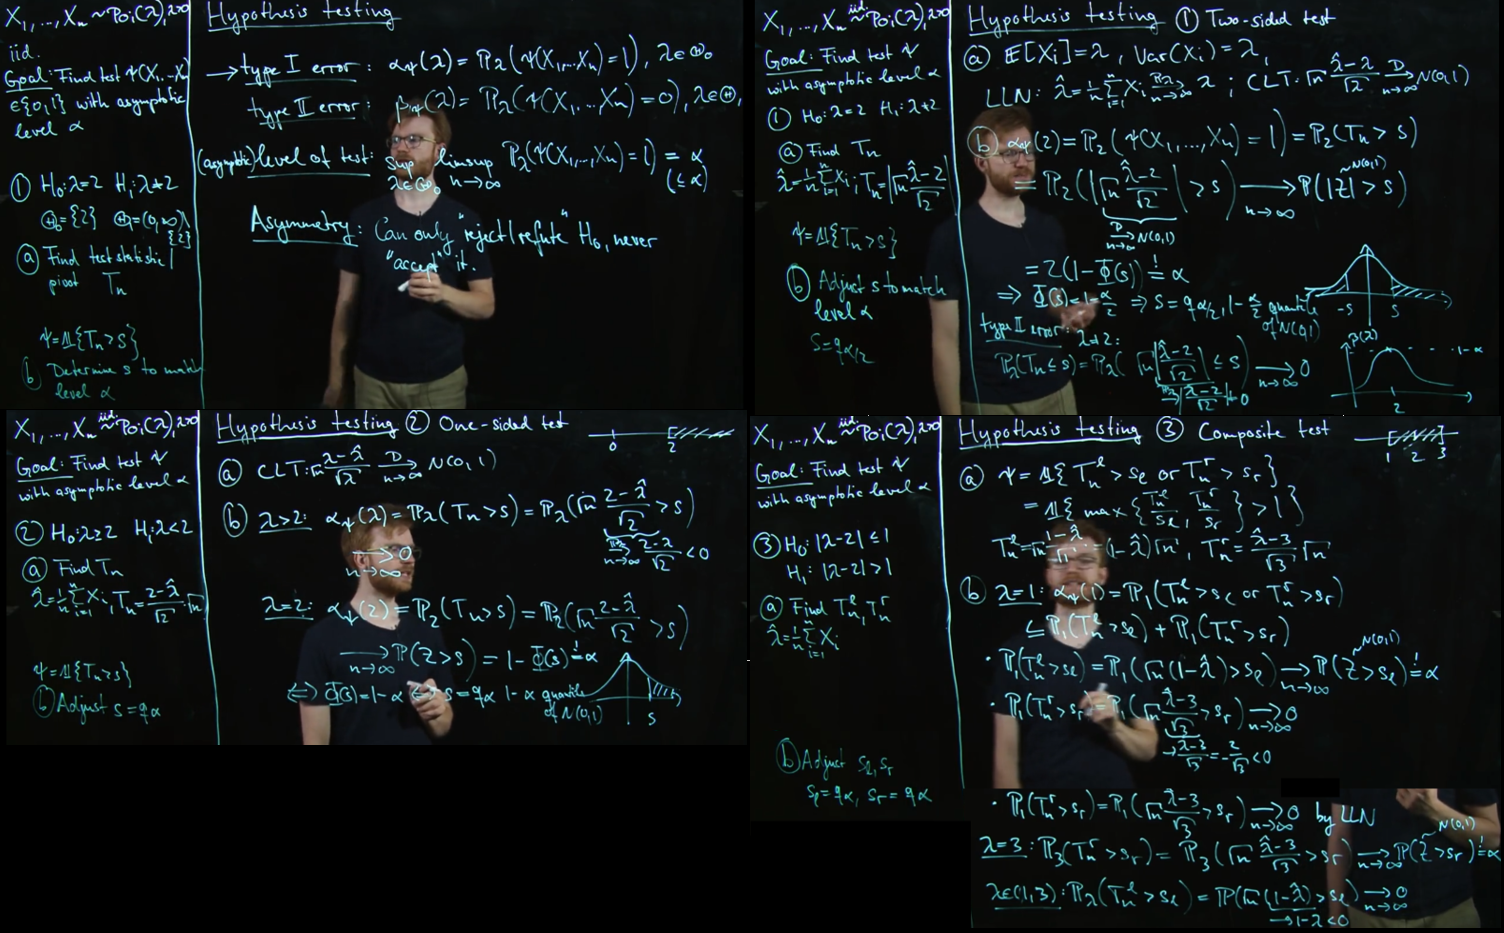 X₁, ..., Xₙ ~ Poi(λ), λ>0
iid.
Goal: Find test ψ(X₁...Xₙ)
∈{0,1} with asymptotic
level α
① H₀: λ=2 H₁: λ≠2
Θ₀={2} Θ₁=(0,∞)\
{2}
ⓐ Find test statistic/
pivot Tₙ
ψ=𝟙{Tₙ>s}
ⓑ Determine s to match
level α
Hypothesis testing
→ type I error: α_ψ(λ) = ℙ_λ(ψ(X₁,...,Xₙ)=1), λ∈Θ₀
type II error: β_ψ(λ) = ℙ_λ(ψ(X₁...,Xₙ)=0), λ∈Θ₁
(asymptotic) level of test: sup_{λ∈Θ₀} limsup_{n→∞} ℙ_λ(ψ(X₁,...,Xₙ)=1) = α
(≤α)
Asymmetry: Can only "reject/refute" H₀, never
"accept" it.
X₁, ..., Xₙ iid. ~ Poi(λ), λ>0
Goal: Find test ψ
with asymptotic level α
① H₀: λ=2 H₁: λ≠2
ⓐ Find Tₙ
λ̂=1/n Σᵢ₌₁ⁿ Xᵢ; Tₙ=|√n (λ̂-2)/√2|
ψ=𝟙{Tₙ>s}
ⓑ Adjust s to match
level α
s=q_{α/2}
Hypothesis testing ① Two-sided test
ⓐ 𝔼[Xᵢ]=λ, Var(Xᵢ)=λ,
LLN: λ̂=1/n Σᵢ₌₁ⁿ Xᵢ →ℙ_λ n→∞ λ; CLT: √n (λ̂-λ)/√λ →D n→∞ N(0,1)
ⓑ α_ψ(2)=ℙ₂(ψ(X₁,...,Xₙ)=1)=ℙ₂(Tₙ>s)
=ℙ₂(|√n (λ̂-2)/√2|>s) → n→∞ ℙ(|Z|>s)
~N(0,1)
→D n→∞ N(0,1)
=2(1-Φ(s)) =! α
⇒ Φ(s)=1-α/2 ⇒ s=q_{α/2}, 1-α/2 quantile
of N(0,1)
-s s
type II error: λ≠2:
ℙ_λ(Tₙ≤s)=ℙ_λ(√n|(λ̂-2)/√2|≤s) → n→∞ 0
→ℙ_λ |(λ-2)/√2|≠0
β(λ)
1-α
2
X₁, ..., Xₙ iid. ~ Poi(λ), λ>0
Goal: Find test ψ
with asymptotic level α
② H₀: λ≥2 H₁: λ<2
ⓐ Find Tₙ
λ̂=1/n Σᵢ₌₁ⁿ Xᵢ, Tₙ=(2-λ̂)/√2 √n
ψ=𝟙{Tₙ>s}
ⓑ Adjust s=q_α
Hypothesis testing ② One-sided test
0 2
ⓐ CLT: √n (λ-λ̂)/√λ →D n→∞ N(0,1)
ⓑ λ>2: α_ψ(λ)=ℙ_λ(Tₙ>s)=ℙ_λ(√n (2-λ̂)/√2 >s)
→ n→∞ 0
→ℙ_λ n→∞ (2-λ)/√2 <0
λ=2: α_ψ(2)=ℙ₂(Tₙ>s)=ℙ₂(√n (2-λ̂)/√2 >s)
→ n→∞ ℙ(Z>s) = 1-Φ(s) =! α
⇔ Φ(s)=1-α ⇔ s=q_α 1-α quantile
of N(0,1)
s
X₁, ..., Xₙ iid. ~ Poi(λ), λ>0
Goal: Find test ψ
with asymptotic level α
③ H₀: |λ-2|≤1
H₁: |λ-2|>1
ⓐ Find Tₙˡ, Tₙʳ
λ̂=1/n Σᵢ₌₁ⁿ Xᵢ
ⓑ Adjust s_ℓ, s_r
s_ℓ=q_α, s_r=q_α
Hypothesis testing ③ Composite test
1 2 3
ⓐ ψ=𝟙{Tₙˡ>s_ℓ or Tₙʳ>s_r}
=𝟙{max{Tₙˡ/s_ℓ, Tₙʳ/s_r}>1}
Tₙˡ=√n (1-λ̂)/√1=(1-λ̂)√n, Tₙʳ=(λ̂-3)/√3 √n
ⓑ λ=1: α_ψ(1)=ℙ₁(Tₙˡ>s_ℓ or Tₙʳ>s_r)
≤ℙ₁(Tₙˡ>s_ℓ)+ℙ₁(Tₙʳ>s_r)
~N(0,1)
• ℙ₁(Tₙˡ>s_ℓ)=ℙ₁(√n(1-λ̂)>s_ℓ) → n→∞ ℙ(Z>s_ℓ) =! α
• ℙ₁(Tₙʳ>s_r)=ℙ₁(√n (λ̂-3)/√3 >s_r) → n→∞ 0
→(λ-3)/√3=-2/√3<0
• ℙ₁(Tₙʳ>s_r)=ℙ₁(√n (λ̂-3)/√3 >s_r) → n→∞ 0 by LLN
~N(0,1)
λ=3: ℙ₃(Tₙʳ>s_r)=ℙ₃(√n (λ̂-3)/√3 >s_r) → n→∞ ℙ(Z>s_r) =! α
λ∈(1,3): ℙ_λ(Tₙˡ>s_ℓ)=ℙ(√n(1-λ̂)>s_ℓ) → n→∞ 0
→1-λ<0